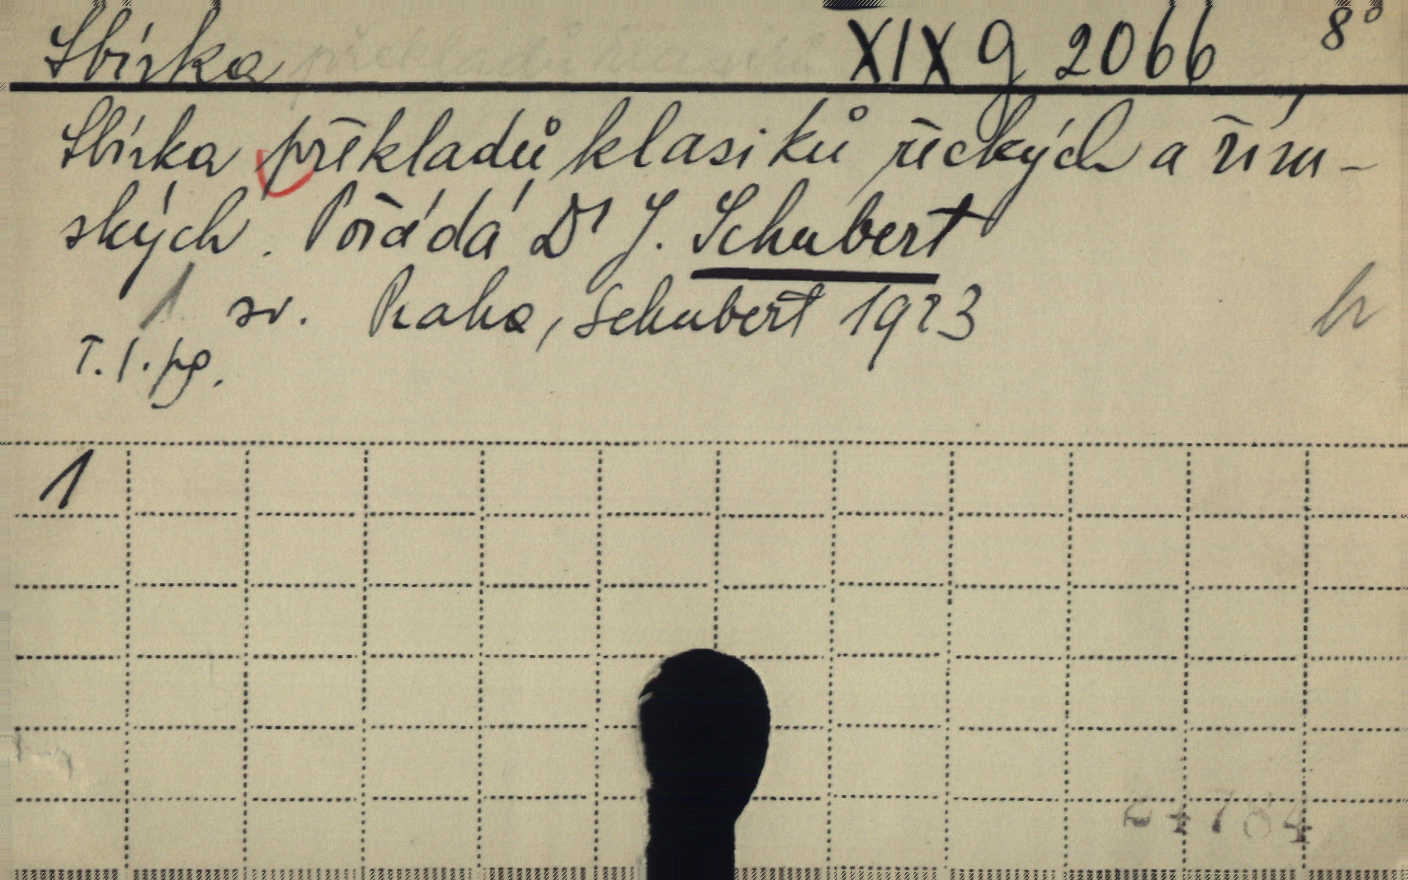 Sbírka XIX g 2066 8°
Sbírka překladů klasiků řeckých a řím-
ských. Pořádá Dr J. Schubert
1 sv. Praha, Schubert 1923
T. I. pg.
1